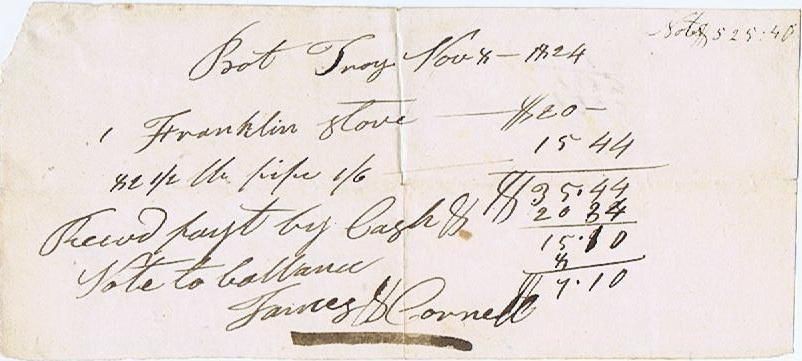 Note $525.40
Bot Troy Nov 8 – 1824
1 Franklin stove — $20 –
82 1/2 lb pipe 1/6 — 15 44
$35.44
Recvd payt by Cash & 20 34
15.10
Note to ballance 8
$7.10
James & Cornell